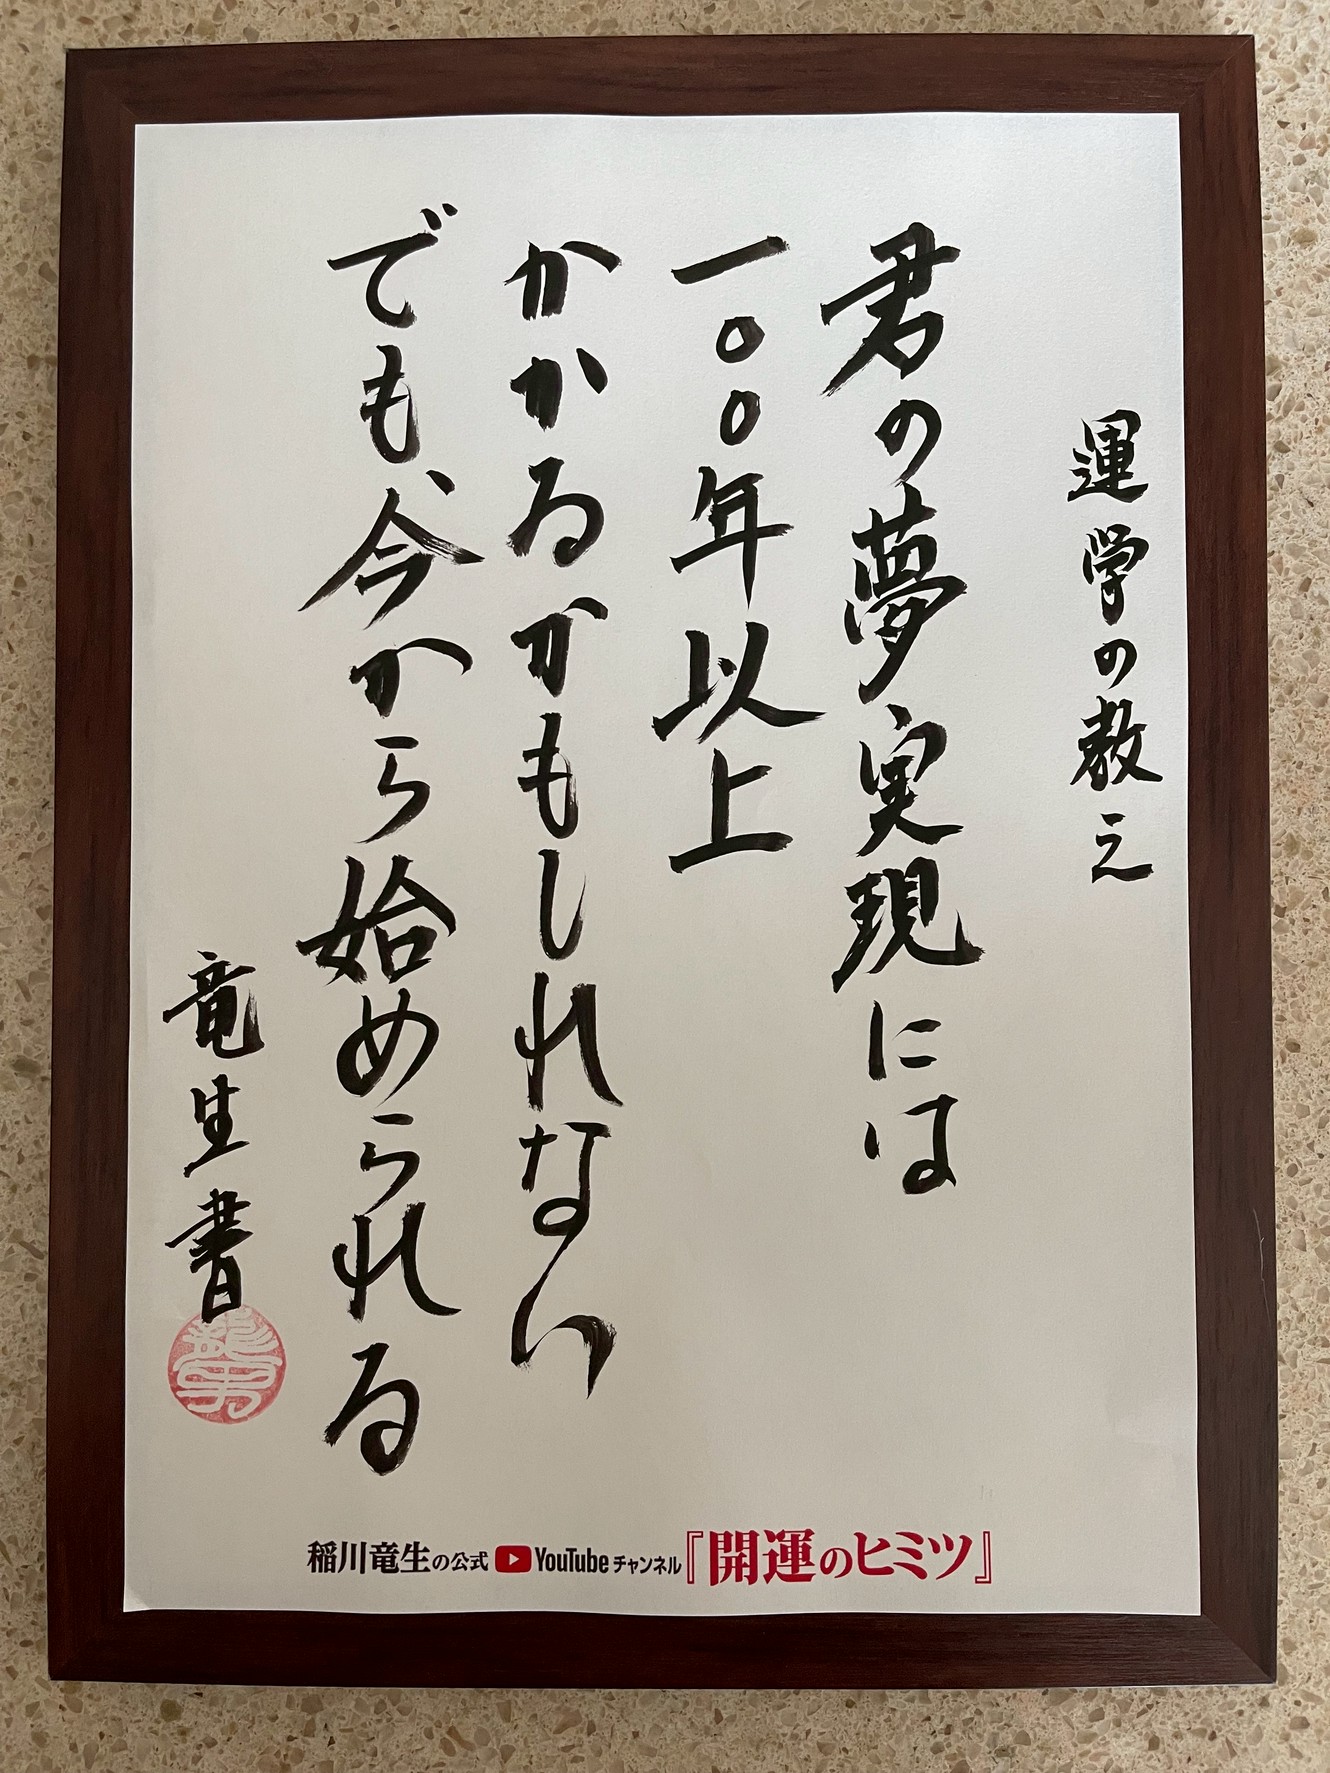 運学の教え
君の夢実現には
一〇〇年以上
かかるかもしれない
でも、今から始められる
竜生書
稲川竜生の公式 YouTube チャンネル『開運のヒミツ』